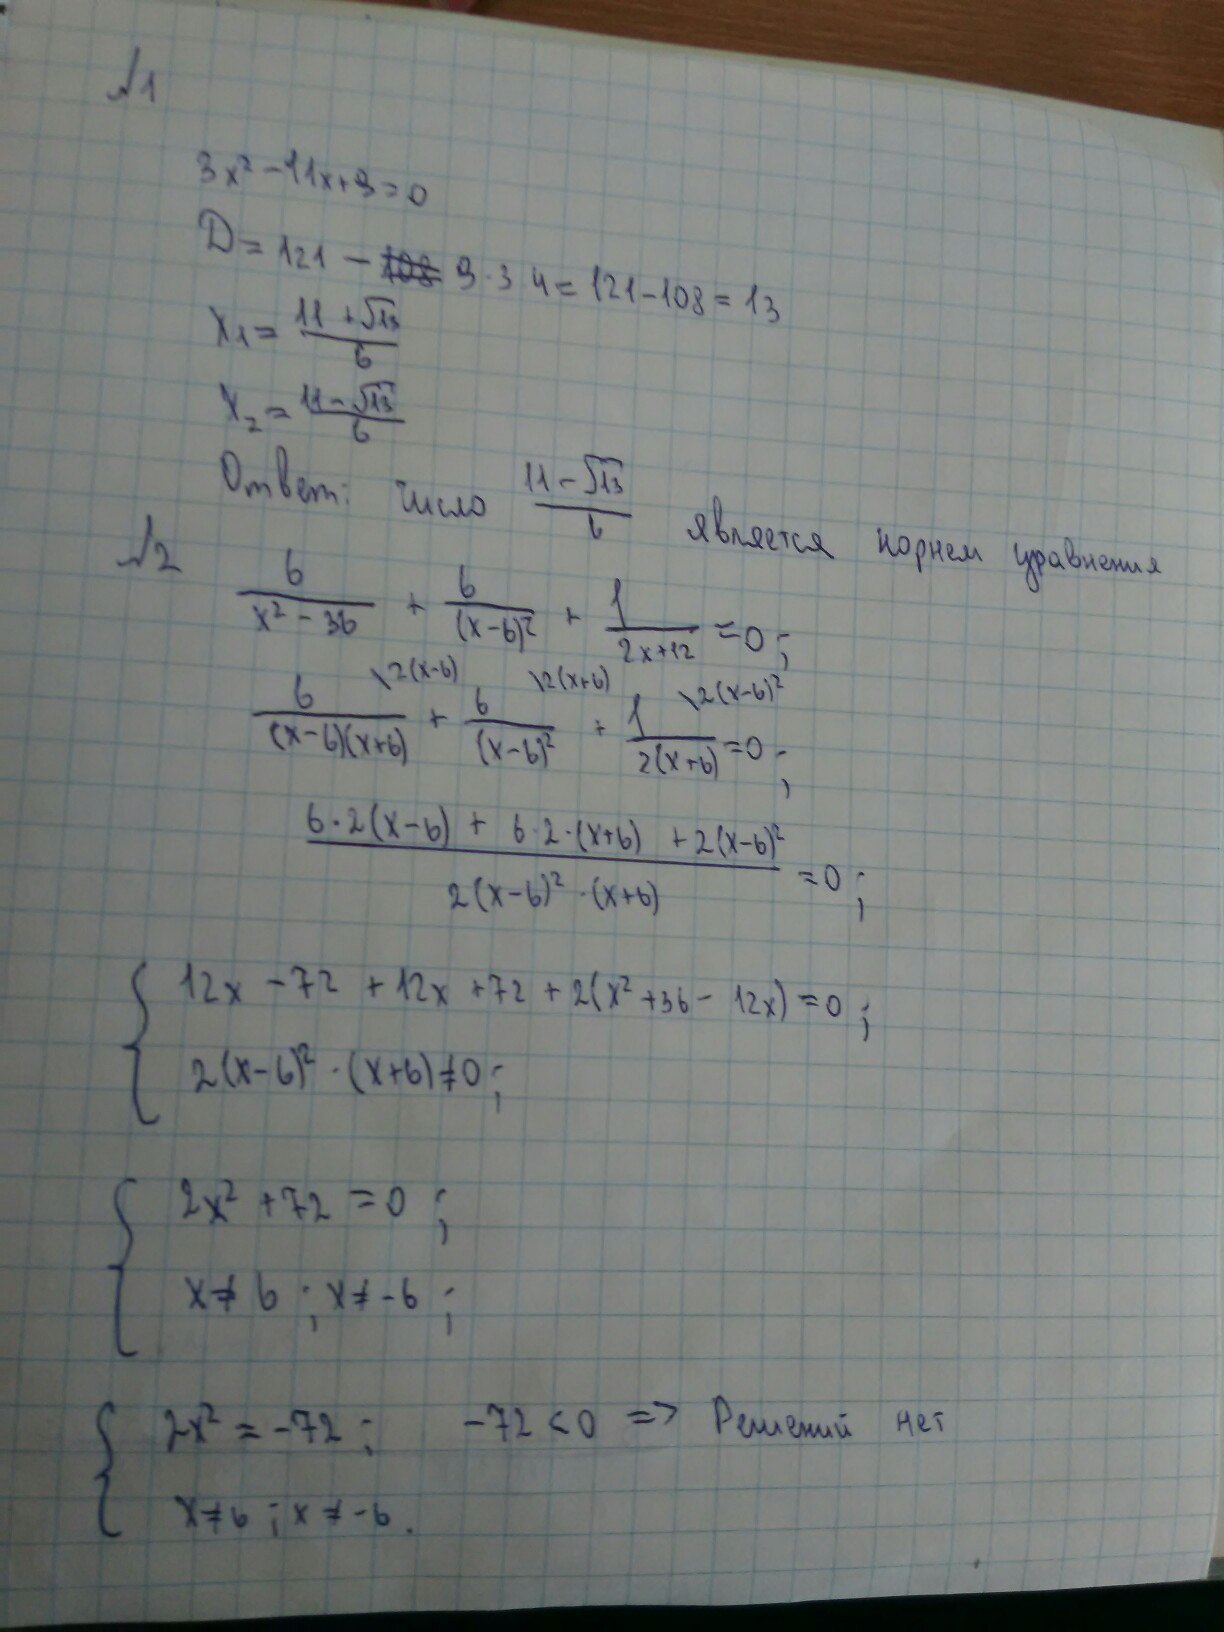 №1
3x² - 11x + 9 = 0
D = 121 - 9 · 3 4 = 121 - 108 = 13
x₁ = (11 + √13)/6
x₂ = (11 - √13)/6
Ответ: число (11 - √13)/6 является корнем уравнения
№2
6/(x² - 36) + 6/(x-6)² + 1/(2x+12) = 0;
6/((x-6)(x+6)) \2(x-6) + 6/(x-6)² \2(x+6) + 1/(2(x+6)) \2(x-6)² = 0;
(6·2(x-6) + 6·2·(x+6) + 2(x-6)²)/(2(x-6)² · (x+6)) = 0;
{ 12x - 72 + 12x + 72 + 2(x² + 36 - 12x) = 0;
2(x-6)² · (x+6) ≠ 0;
{ 2x² + 72 = 0;
x ≠ 6; x ≠ -6;
{ 2x² = -72; -72 < 0 => Решений нет
x ≠ 6; x ≠ -6.